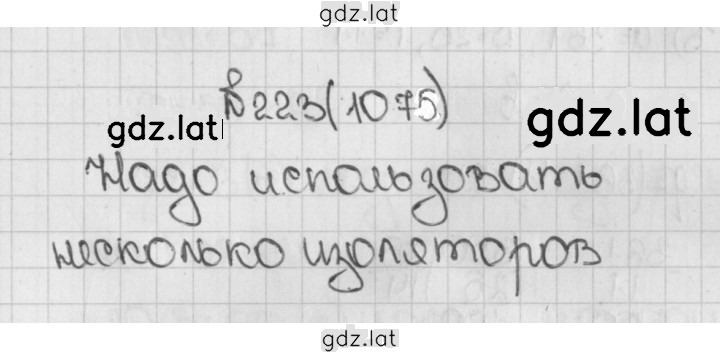 gdz.lat
№223(1075)
gdz.lat
gdz.lat
Надо использовать
несколько изоляторов
gdz.lat